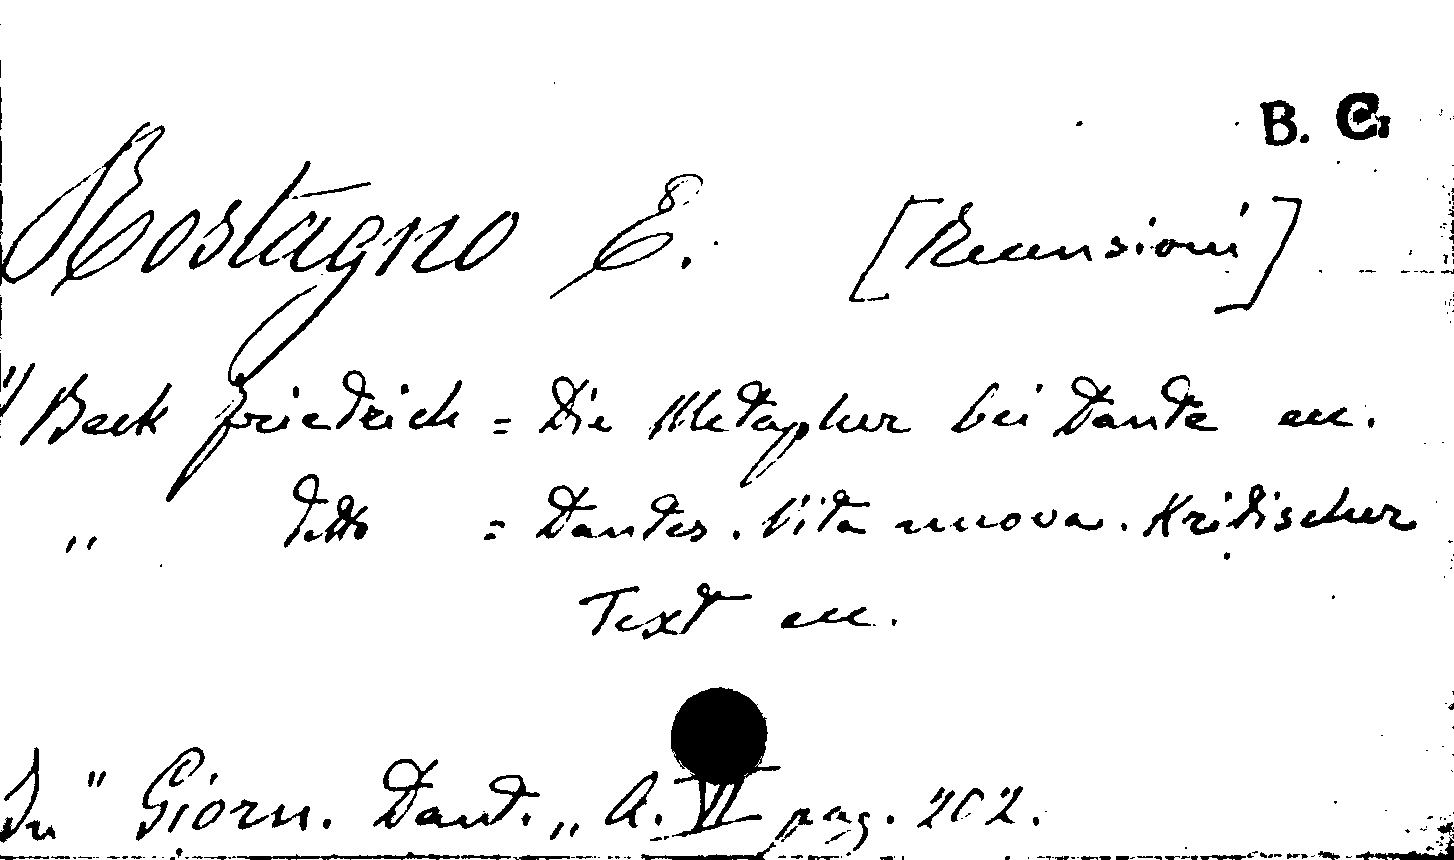 B. C.
Rostagno E. [Recensioni]
" Beck Friedrich = Die Metapher bei Dante ecc.
" detto = Dantes. Vita nuova. Kritischer
Text ecc.
In " Giorn. Dant. „ A. VI pag. 202.